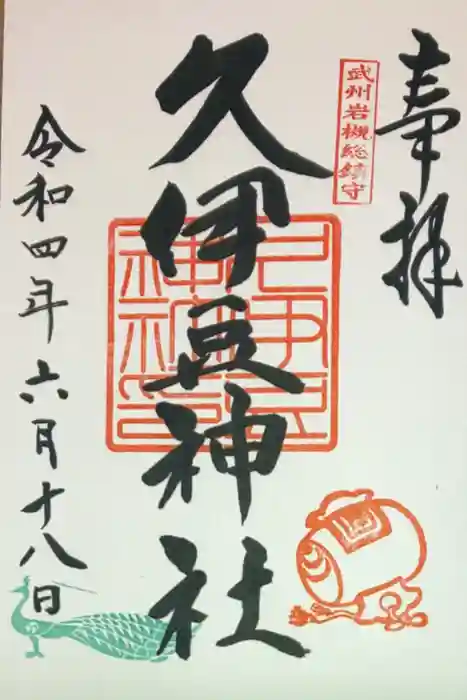 奉拝
武州岩槻総鎮守
久伊豆神社
令和四年六月十八日